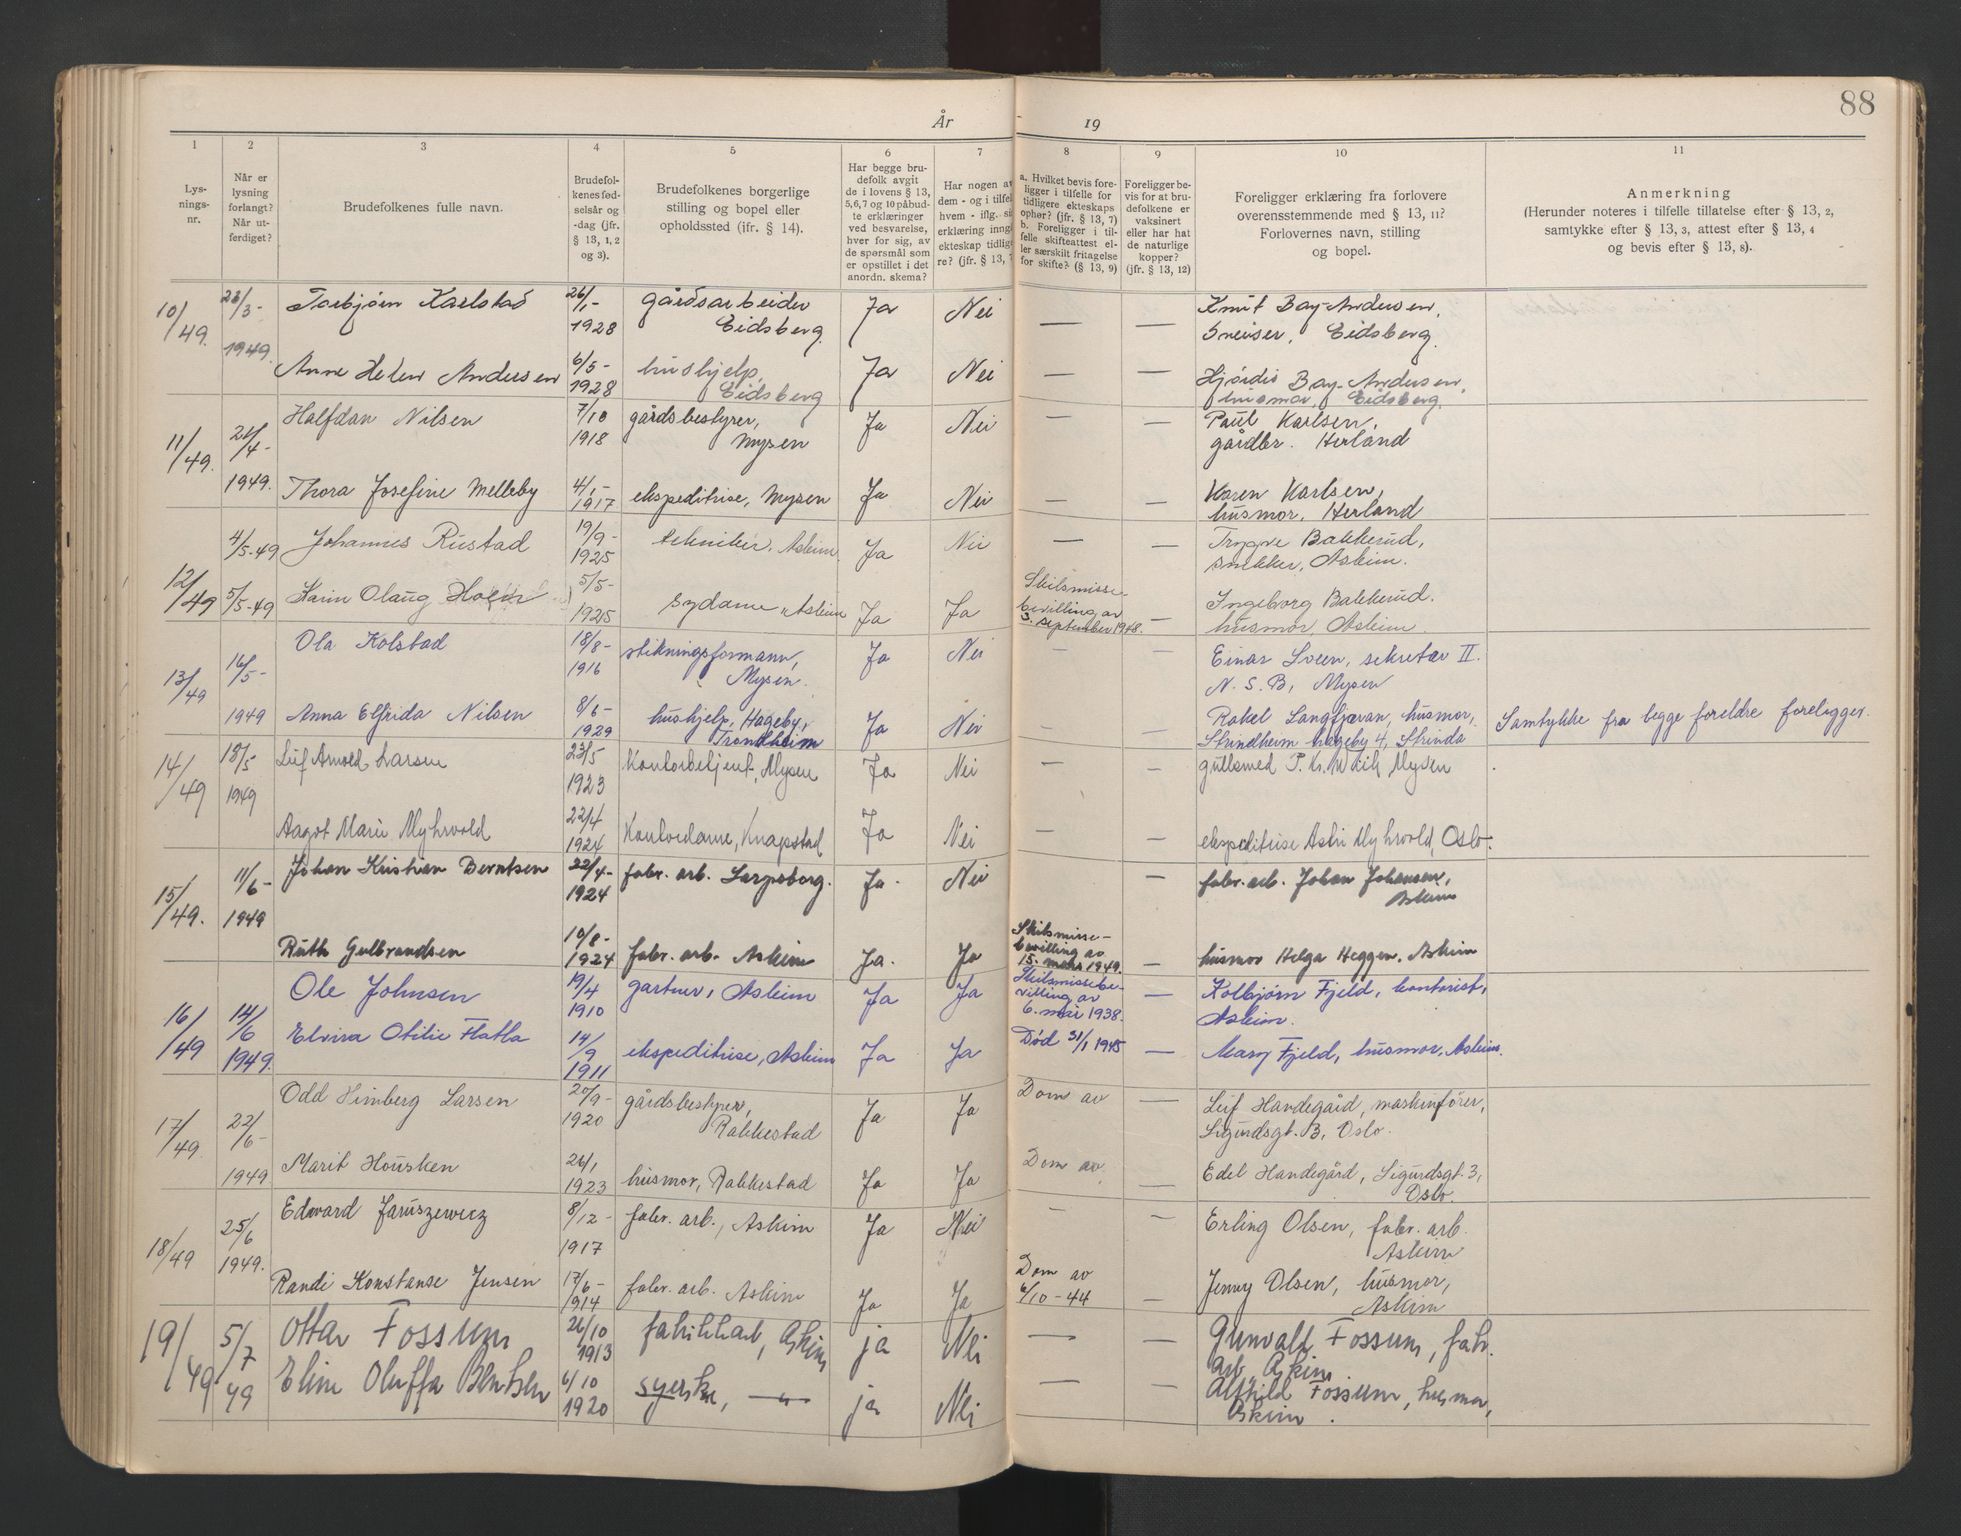 88
År 19
1 2 3 4 5 6 7 8 9 10 11
Lys-
nings-
nr.
Når er
lysning
forlangt?
Når ut-
ferdiget?
Brudefolkenes fulle navn.
Brudefol-
kenes fød-
selsår og
-dag (jfr.
§ 13, 1, 2
og 3).
Brudefolkenes borgerlige
stilling og bopel eller
opholdssted (jfr. § 14).
Har begge bru-
defolk avgit
de i lovens § 13,
5,6,7 og 10 påbud-
te erklæringer
ved besvarelse,
hver for sig, av
de spørsmål som
er opstillet i det
anordn. skema?
Har nogen av
dem - og i tilfel
hvem - iflg. si
erklæring inng
ekteskap tidlig
re? (jfr. § 13, 7
a. Hvilket bevis fore-
ligger i tilfelle for
tidligere ekteskaps
ophør? (jfr. § 13, 7)
b. Foreligger i til-
felle skifteattest el-
ler særskilt fritagelse
for skifte? (§ 13, 9)
Foreligger be-
vis for at bru-
defolkene er
vaksinert
eller har hat
de naturlige
kopper?
(jfr. § 13, 12)
Foreligger erklæring fra forlovere
overensstemmende med § 13, 11?
Forlovernes navn, stilling
og bopel.
Anmerkning
(Herunder noteres i tilfelle tillatelse efter § 13, 2,
samtykke efter § 13, 3, attest efter § 13, 4
og bevis efter § 13, 8).
10/49. 23/3-1949. Torbjørn Karlstad 26/1-1928 gårdsarbeider Eidsberg. Ja Nei — — Knut Bay-Andersen, Sneiser, Eidsberg.
Anne Helen Andersen 6/5-1928 hushjelp, Eidsberg Ja Nei — — Hjørdis Bay-Andersen, husmor, Eidsberg.
11/49. 21/4-1949. Halfdan Nilsen 7/10 1918 gårdsbestyrer, Mysen Ja Nei — — Paul Karlsen, gårdbr. Herland
Thora Josefine Melleby 4/1-1917 ekspeditrise, Mysen Ja Nei — — Karen Karlsen, husmor, Herland
12/49 4/5-49 Johannes Rustad 19/9-1925 tekniker, Askim. Ja Nei — — Trygve Bakkerud, snekker, Askim.
5/5-49 Karin Olaug Hoen 5/5-1925 sydame, Askim Ja Ja Skilsmisse-bevilling av 3. september 1948. — Ingeborg Bakkerud. husmor, Askim.
13/49 16/5-1949 Ola Kolstad 18/8-1916 stikningsformann, Mysen. Ja Nei — — Einar Sveen, sekretær II. N.S.B, Mysen
Anna Elfrida Nilsen 8/6-1929 hushjelp, Hageby, Trondheim Ja Nei — — Rakel Langfjæran, husmor, Strindheim hageby 4, Strinda Samtykke fra begge foreldre foreligger.
14/49 18/5 1949 Leif Arnold Larsen 23/5 1923 Kontorbetjent, Mysen Ja Nei — — gullsmed P. Kr. Mysen
Aagot Marie Myhrvold 22/4 1924 Kontordame, Knapstad Ja Nei — — ekspeditrise Astri Myhrvold, Oslo.
15/49. 11/6-1949 Johan Kristian Berntsen 22/4-1924 fabr. arb. Sarpsborg. Ja. Nei — fabr. arb. Johan Johansen, Askim
Ruth Gulbrandsen 10/8-1924 fabr. arb. Askim Ja. Ja Skilsmisse-bevilling av 15. mars 1949. — husmor Helga Heggen. Askim
16/49 14/6 1949. Ole Johnsen 19/4 1910 gartner, Askim Ja Ja Skilsmissebe-villing av 6. mai 1938. — Kolbjørn Fjeld, kontorist, Askim.
Elvira Otilie Flatla 14/9 1911 ekspeditrise, Askim Ja Ja Død 31/1 1945 — Mary Fjeld, husmor, Askim.
17/49. 22/6-1949 Odd Himberg Larsen 20/9-1920 gårdsbestyrer, Rakkestad Ja Ja Dom av — Leif Handegård, maskinfører, Sigurdsgt. 3, Oslo.
Marit Housken 26/1 1923 husmor, Rakkestad Ja Ja Dom av — Edel Handegård, Sigurdsgt. 3, Oslo.
18/49 25/6 1949. Edward Jaruszewicz 8/12-1917 fabr. arb., Askim Ja Nei — — Erling Olsen, fabr. arb. Askim
Randi Konstanse Jensen 17/6-1914 fabr. arb. Askim Ja Ja Dom av 6/10-44 — Jenny Olsen, husmor, Askim
19/49 5/7 49 Ottar Fossum 26/10 1913 fabrikkarb, Askim ja Nei — — Gunvald Fossum, fabr. arb, Askim
Eline Oluffa Bentsen 6/10 1920 syerske, —"— ja Nei — — Alfhild Fossum, husmor, Askim.